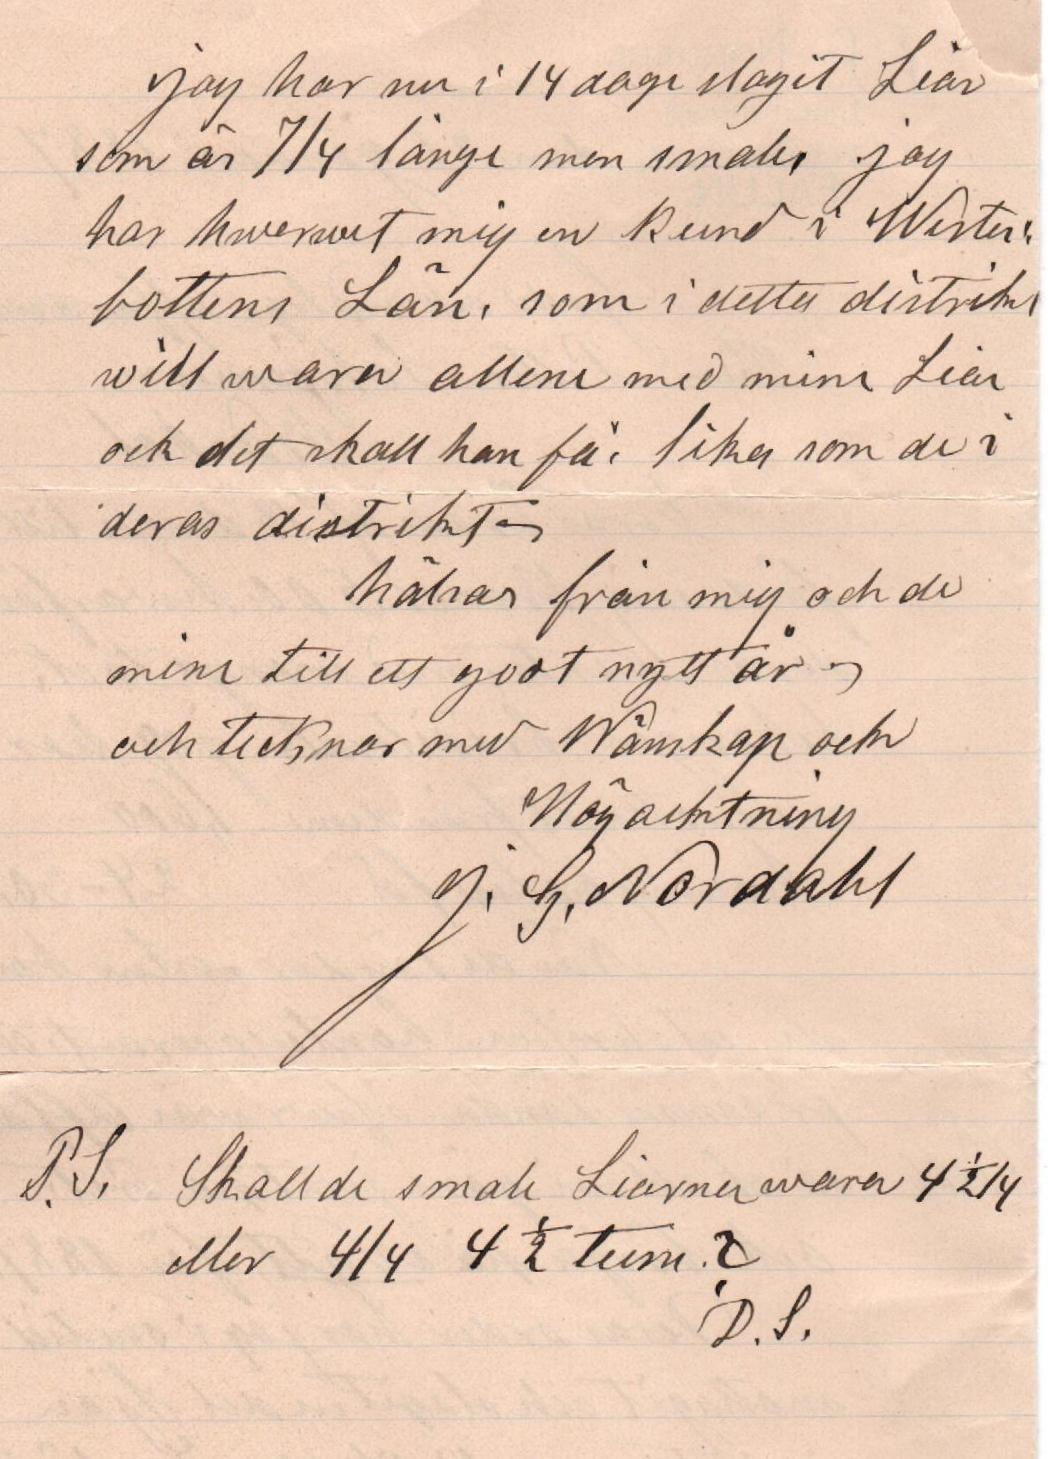 jag har nu i 14 dage slagit Liar
som är 7/4 långe men smale, jag
har hwerwet mig en kund i Wester:
bottens Län, som i detta distrikt
will wara allene med mine Liar
och det skall han få, lika som de i
deras distrikt
hälsar från mig och de
mine till ett godt nytt år
och tecknar med Wänskap och
Högachtning
J. G. Nordahl
P.S. Skall de smale Liarna wara 4 1/2/4
eller 4/4 4 1/2 tum.?
D.S.